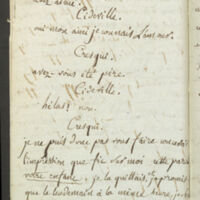 Cideville.
mon ami je connais l'amour.
Cresqui.
avez-vous été père.
Cideville.
hélas! non.
Cresqui.
je ne puis donc pas vous faire connaitre
l'impression que fit sur moi cette
votre enfant. je la quittais,
que le lendemain à la même heure, je